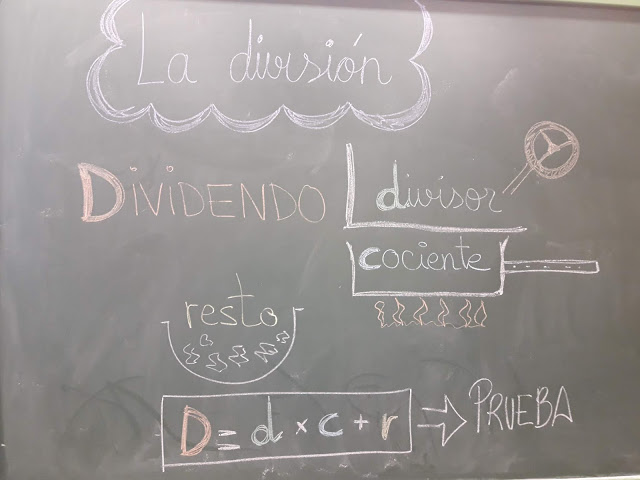 La división
DIVIDENDO divisor
cociente
resto
D = d x c + r PRUEBA